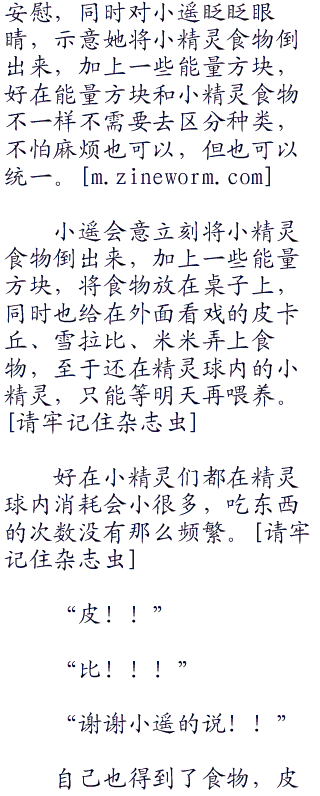 安慰，同时对小遥眨眨眼
睛，示意她将小精灵食物倒
出来，加上一些能量方块，
好在能量方块和小精灵食物
不一样不需要去区分种类，
不怕麻烦也可以，但也可以
统一。[m.zineworm.com]
小遥会意立刻将小精灵
食物倒出来，加上一些能量
方块，将食物放在桌子上，
同时也给在外面看戏的皮卡
丘、雪拉比、米米弄上食
物，至于还在精灵球内的小
精灵，只能等明天再喂养。
[请牢记住杂志虫]
好在小精灵们都在精灵
球内消耗会小很多，吃东西
的次数没有那么频繁。[请牢
记住杂志虫]
“皮！！”
“比！！！”
“谢谢小遥的说！！”
自己也得到了食物，皮